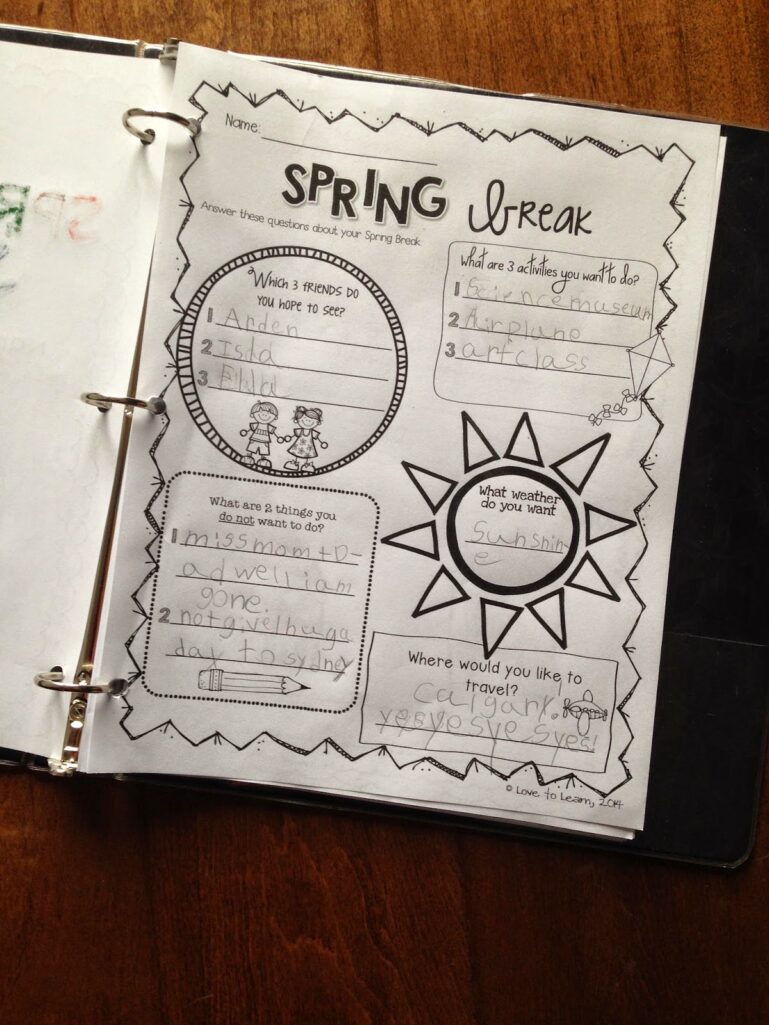 Name:
SPRING break
Answer these questions about your Spring Break.
Which 3 friends do
you hope to see?
1 Anden
2 Isla
3
What are 3 activities you want to do?
1 Science museum
2 Airplane
3 art class
What are 2 things you
do not want to do?
1 miss mom + D-
ad well i am
gone.
2 not give 1 hug a
day to sydney
What weather
do you want
Sunshin-
e
Where would you like to
travel?
Calgary.
yes yes ye s yes!
© Love to Learn, 2014